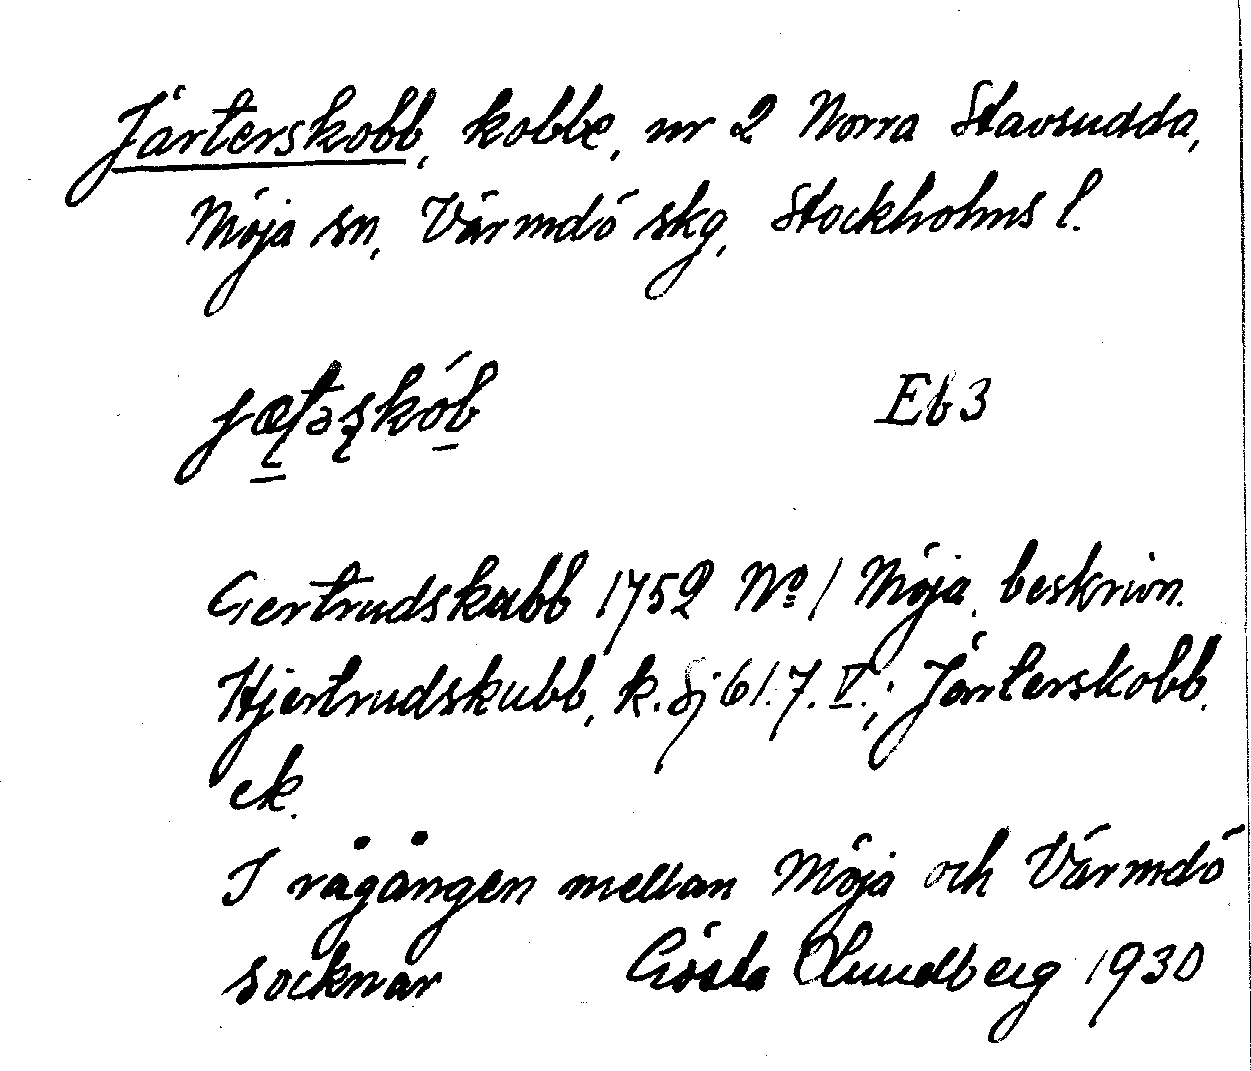 Järterskobb, kobbe, nr 2 Norra Stavsudda,
Möja sn, Värmdö skg, Stockholms l.
Eb 3
Gertrudskubb 1752 No 1 Möja, beskrivn.
Hjertrudskubb, k. Sj 61.7.V.; Järterskobb.
ek.
I rågången mellan Möja och Värmdö
socknar Gösta Lundberg 1930